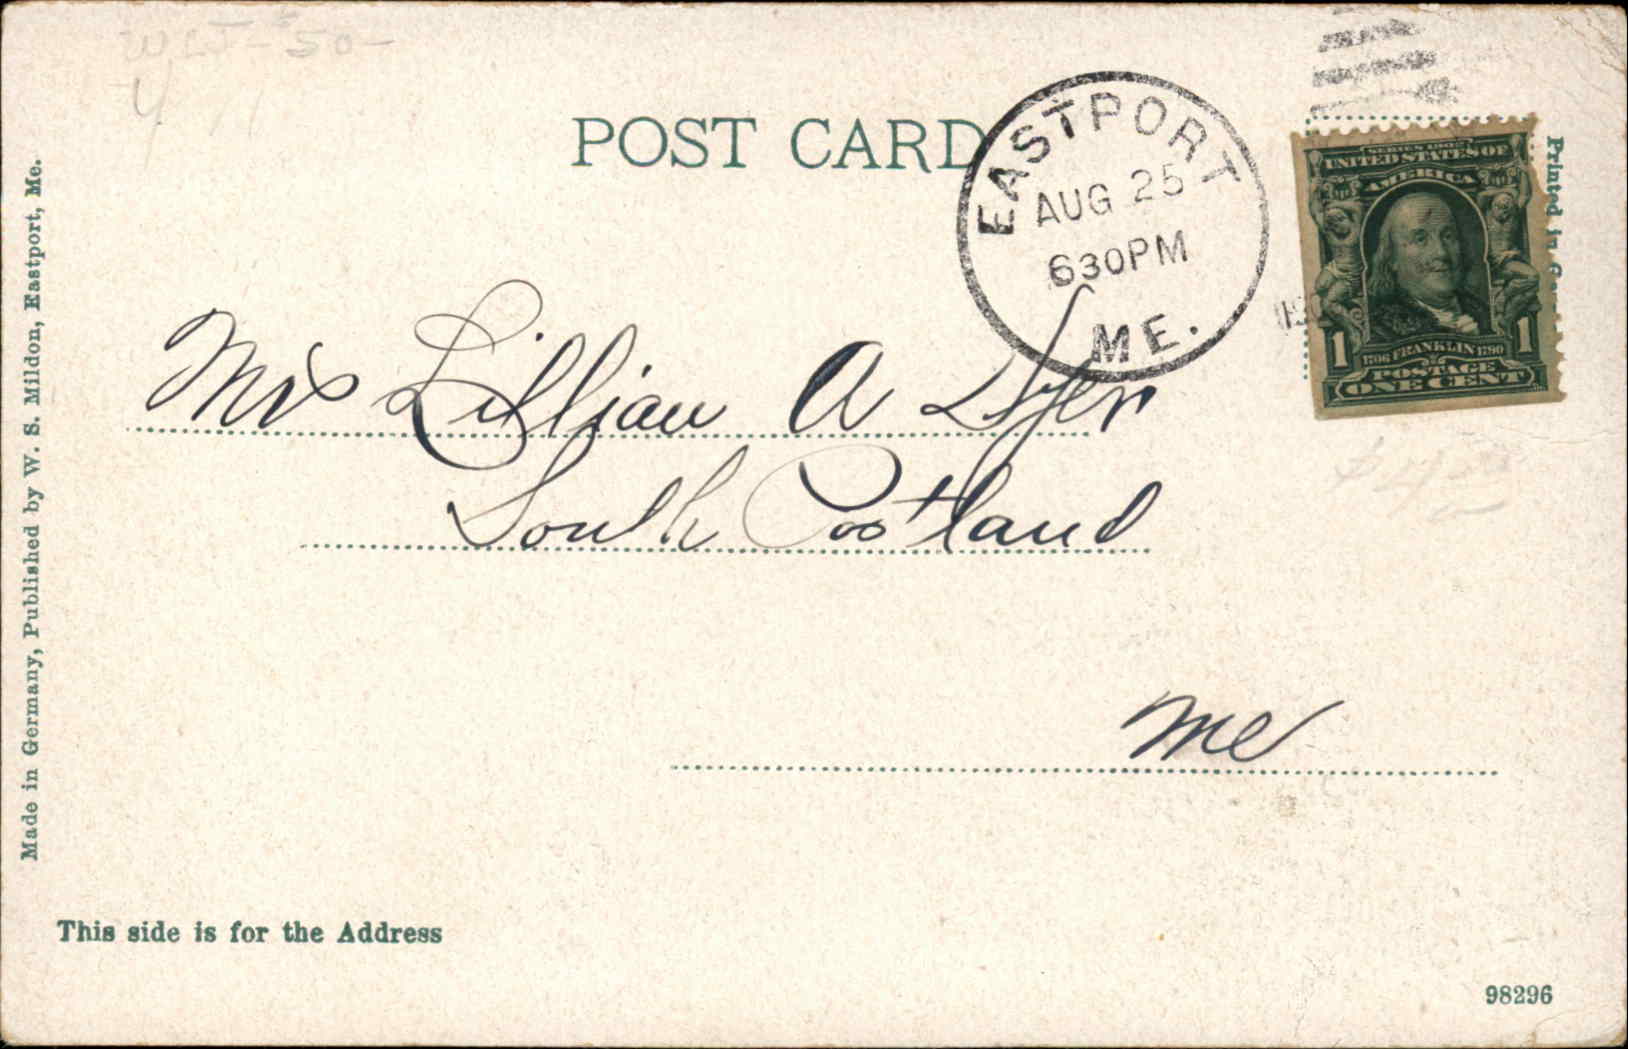 POST CARD
EASTPORT
AUG 25
630PM
ME.
SERIES 1902
UNITED STATES OF
AMERICA
1 1706 FRANKLIN 1790 1
POSTAGE
ONE CENT
Printed in
Mrs Lillian A Dyer
South Portland
Me
Made in Germany, Published by W. S. Mildon, Eastport, Me.
This side is for the Address
98296